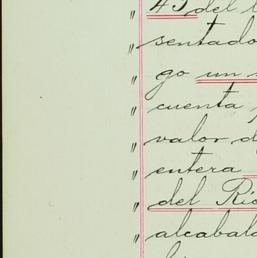 " 45 del
" sentado
go un
" cuenta
" valor d
" entera
" del Río
" alcabala